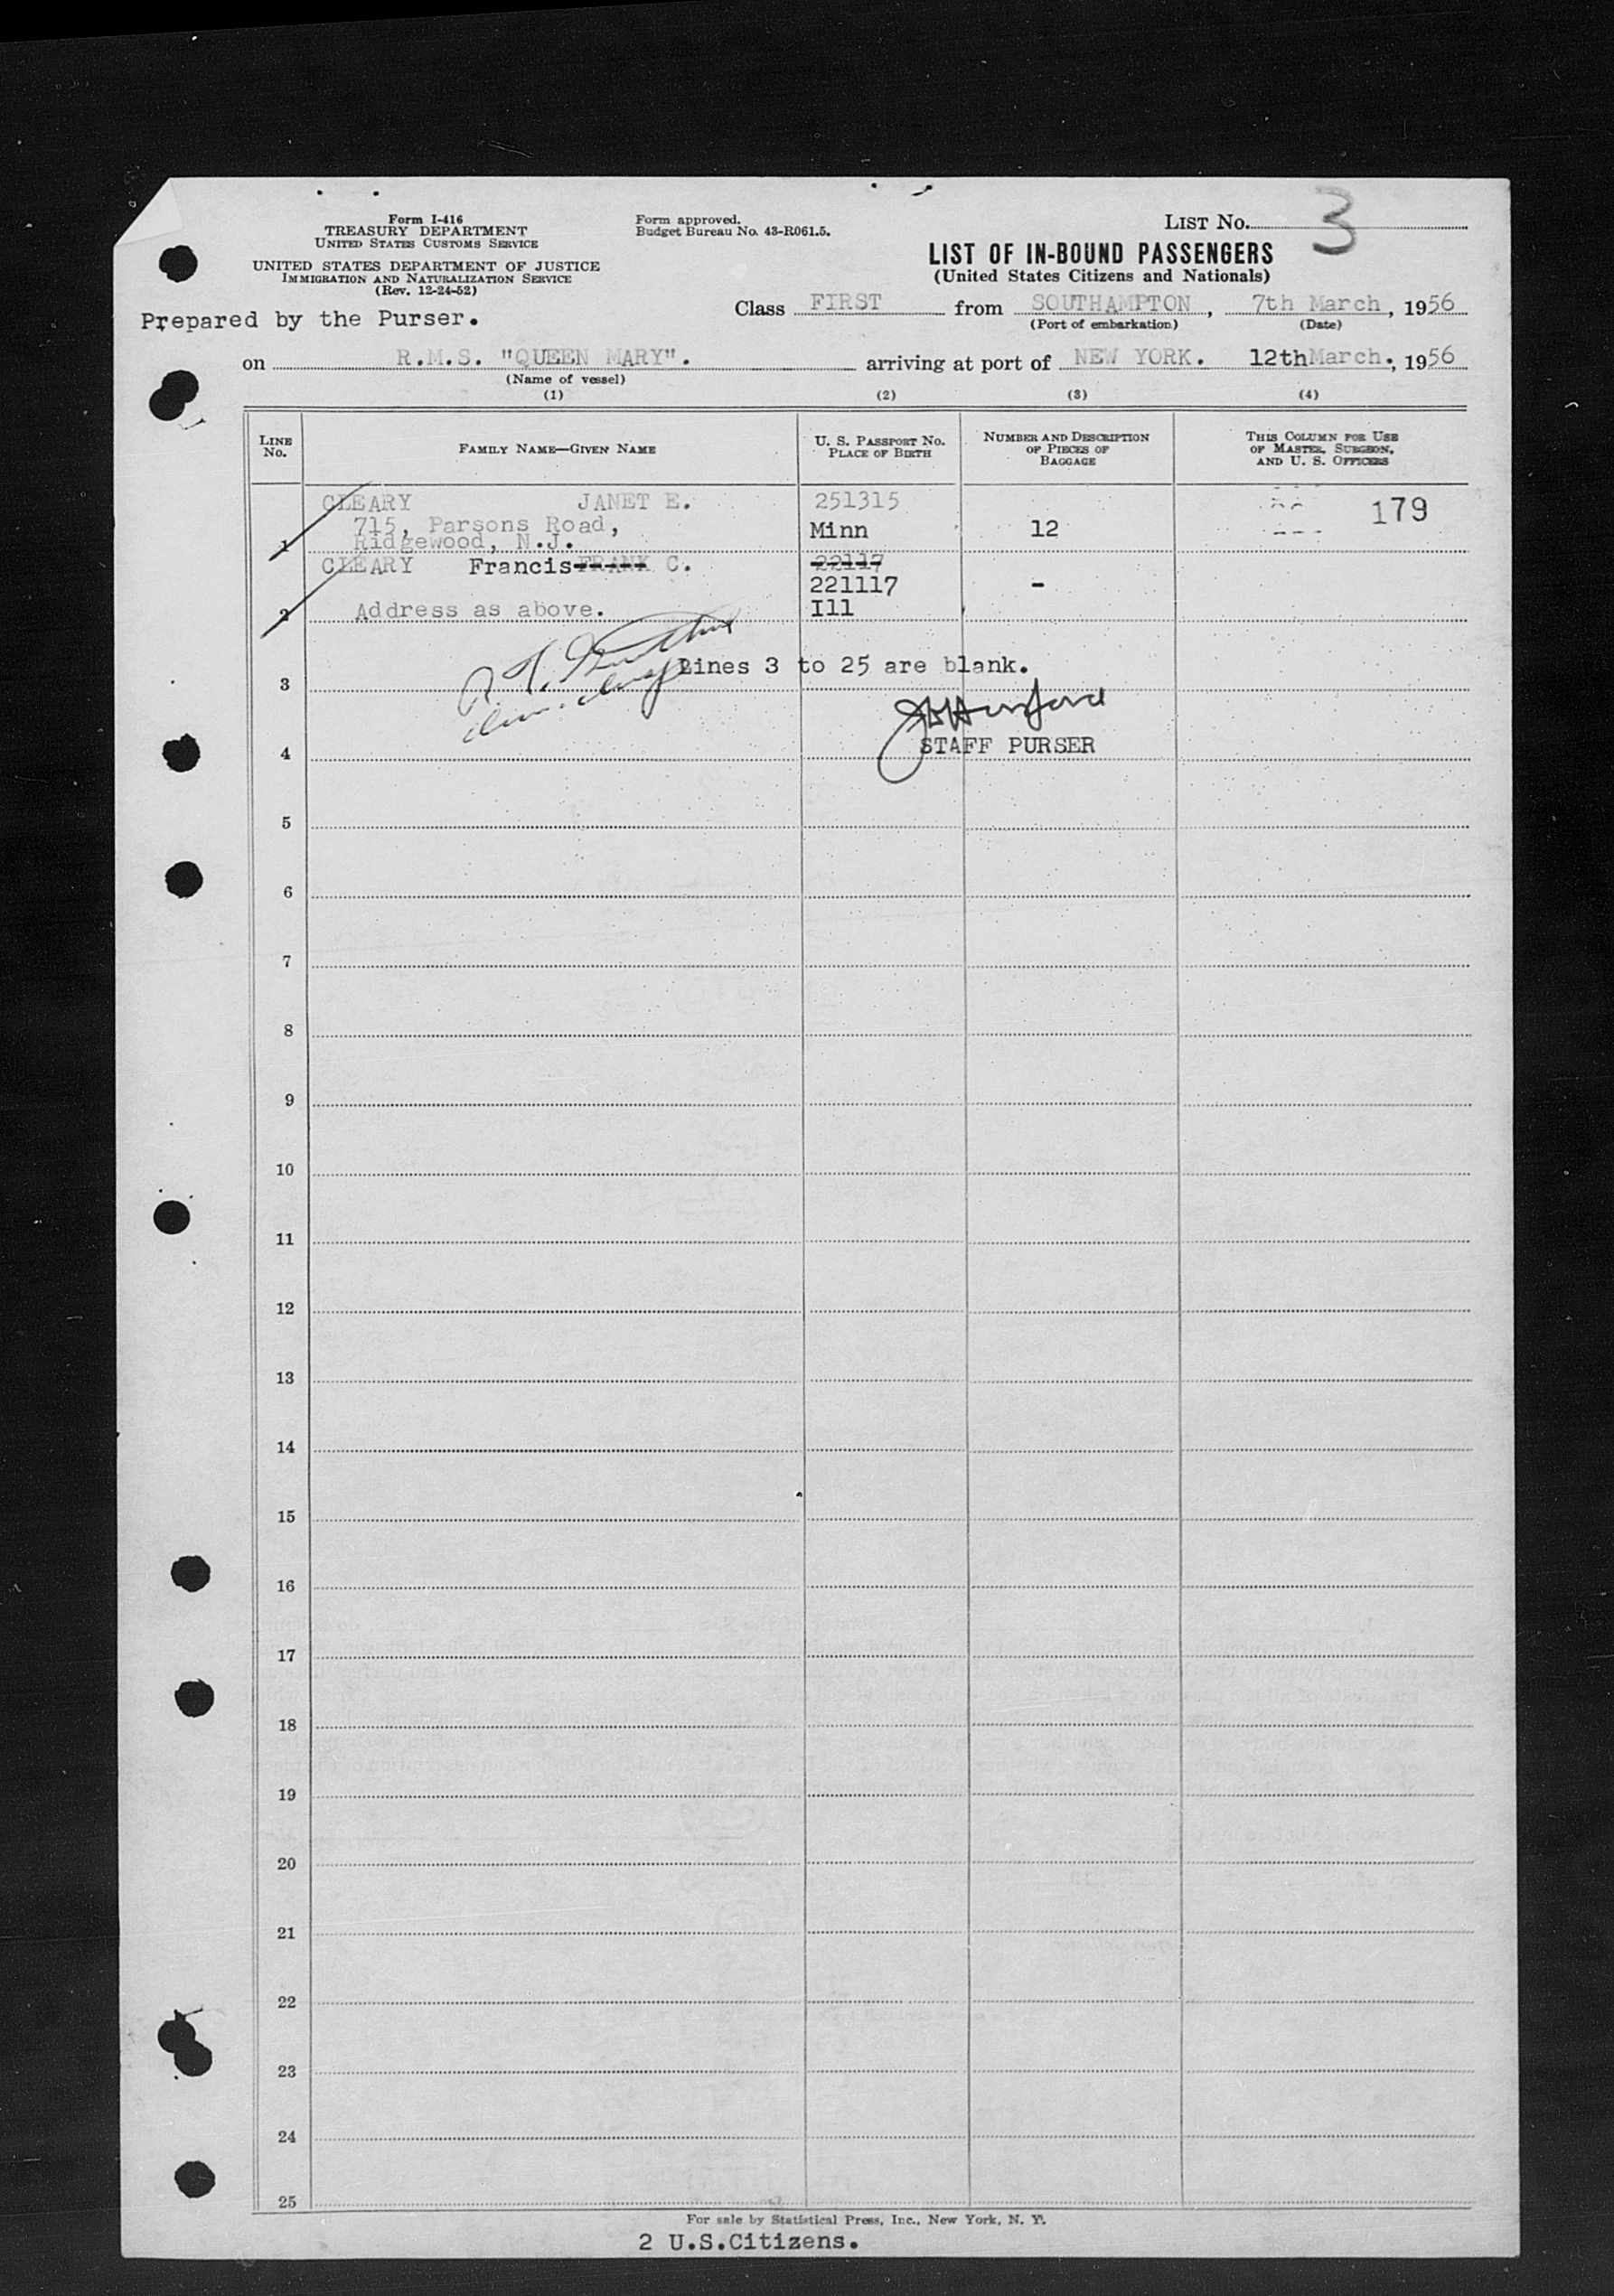 Form I-416
TREASURY DEPARTMENT
UNITED STATES CUSTOMS SERVICE
UNITED STATES DEPARTMENT OF JUSTICE
IMMIGRATION AND NATURALIZATION SERVICE
(Rev. 12-24-52)
Form approved.
Budget Bureau No. 43-R061.5.
LIST No. 3
LIST OF IN-BOUND PASSENGERS
(United States Citizens and Nationals)
Prepared by the Purser.
Class FIRST from SOUTHAMPTON, 7th March, 1956
(Port of embarkation) (Date)
on R.M.S. "QUEEN MARY". arriving at port of NEW YORK. 12th March., 1956
(Name of vessel)
(1) (2) (3) (4)
LINE No. FAMILY NAME—GIVEN NAME U. S. PASSPORT No. PLACE OF BIRTH NUMBER AND DESCRIPTION OF PIECES OF BAGGAGE THIS COLUMN FOR USE OF MASTER, SURGEON, AND U. S. OFFICERS
CLEARY JANET E. 251315 179
715, Parsons Road, Minn 12
1 Ridgewood, N.J.
CLEARY Francis FRANK C. 22117
221117 -
2 Address as above. Ill
Lines 3 to 25 are blank.
3
STAFF PURSER
4
5
6
7
8
9
10
11
12
13
14
15
16
17
18
19
20
21
22
23
24
25
For sale by Statistical Press, Inc., New York, N. Y.
2 U.S.Citizens.